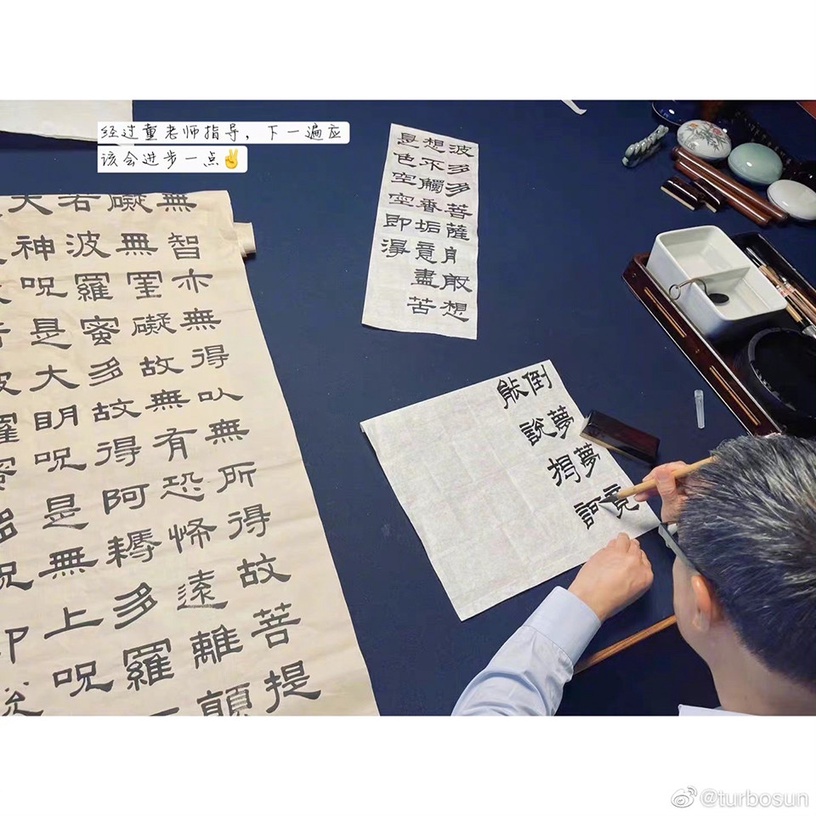 经过董老师指导，下一遍应
该会进步一点✌️
無智亦無得以無所得故菩提
礙無罣礙故無有恐怖遠離顛
若波羅蜜多故得阿耨多羅
大神呪是大明呪是無上呪
波羅蜜多呪即說
波多多菩薩般想
想不觸香垢意盡苦
是色空空即淂
倒夢夢竟
能說揭訶
@turbosun